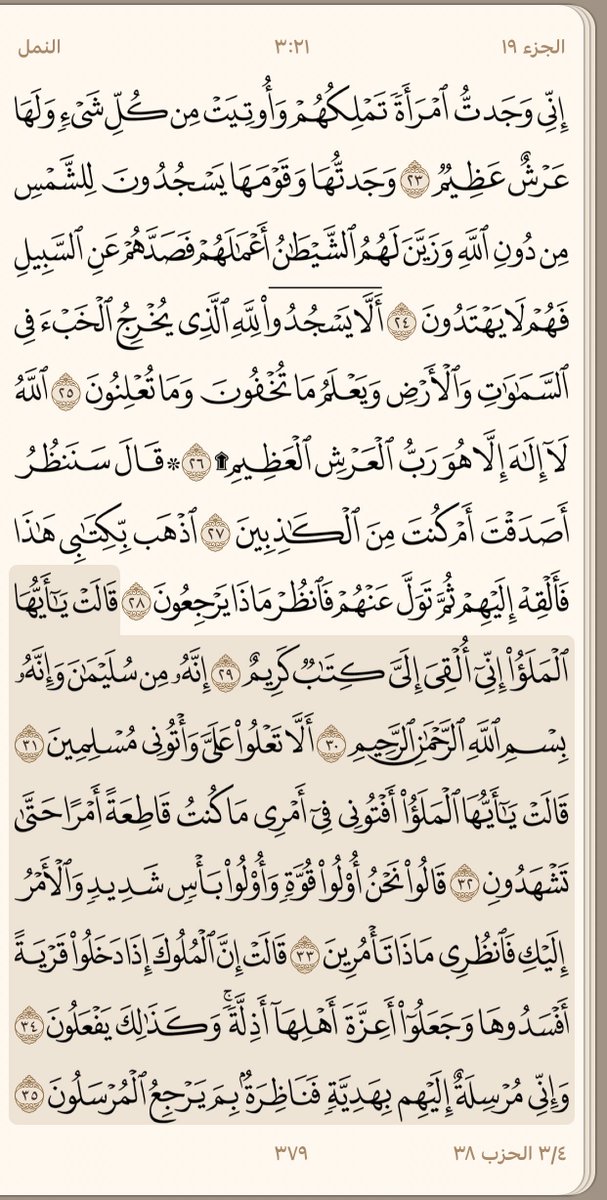 الجزء ١٩
٣:٢١
النمل
إِنِّي وَجَدتُّ ٱمْرَأَةً تَمْلِكُهُمْ وَأُوتِيَتْ مِن كُلِّ شَىْءٍ وَلَهَا
عَرْشٌ عَظِيمٌ ٢٣ وَجَدتُّهَا وَقَوْمَهَا يَسْجُدُونَ لِلشَّمْسِ
مِن دُونِ ٱللَّهِ وَزَيَّنَ لَهُمُ ٱلشَّيْطَـٰنُ أَعْمَـٰلَهُمْ فَصَدَّهُمْ عَنِ ٱلسَّبِيلِ
فَهُمْ لَا يَهْتَدُونَ ٢٤ أَلَّا يَسْجُدُوا۟ لِلَّهِ ٱلَّذِى يُخْرِجُ ٱلْخَبْءَ فِى
ٱلسَّمَـٰوَٰتِ وَٱلْأَرْضِ وَيَعْلَمُ مَا تُخْفُونَ وَمَا تُعْلِنُونَ ٢٥ ٱللَّهُ
لَآ إِلَـٰهَ إِلَّا هُوَ رَبُّ ٱلْعَرْشِ ٱلْعَظِيمِ ۩ ٢٦ * قَالَ سَنَنظُرُ
أَصَدَقْتَ أَمْ كُنتَ مِنَ ٱلْكَـٰذِبِينَ ٢٧ ٱذْهَب بِّكِتَـٰبِى هَـٰذَا
فَأَلْقِهْ إِلَيْهِمْ ثُمَّ تَوَلَّ عَنْهُمْ فَٱنظُرْ مَاذَا يَرْجِعُونَ ٢٨ قَالَتْ يَـٰٓأَيُّهَا
ٱلْمَلَؤُا۟ إِنِّىٓ أُلْقِىَ إِلَىَّ كِتَـٰبٌ كَرِيمٌ ٢٩ إِنَّهُۥ مِن سُلَيْمَـٰنَ وَإِنَّهُۥ
بِسْمِ ٱللَّهِ ٱلرَّحْمَـٰنِ ٱلرَّحِيمِ ٣٠ أَلَّا تَعْلُوا۟ عَلَىَّ وَأْتُونِى مُسْلِمِينَ ٣١
قَالَتْ يَـٰٓأَيُّهَا ٱلْمَلَؤُا۟ أَفْتُونِى فِىٓ أَمْرِى مَا كُنتُ قَاطِعَةً أَمْرًا حَتَّىٰ
تَشْهَدُونِ ٣٢ قَالُوا۟ نَحْنُ أُو۟لُوا۟ قُوَّةٍ وَأُو۟لُوا۟ بَأْسٍ شَدِيدٍ وَٱلْأَمْرُ
إِلَيْكِ فَٱنظُرِى مَاذَا تَأْمُرِينَ ٣٣ قَالَتْ إِنَّ ٱلْمُلُوكَ إِذَا دَخَلُوا۟ قَرْيَةً
أَفْسَدُوهَا وَجَعَلُوٓا۟ أَعِزَّةَ أَهْلِهَآ أَذِلَّةً ۖ وَكَذَٰلِكَ يَفْعَلُونَ ٣٤
وَإِنِّى مُرْسِلَةٌ إِلَيْهِم بِهَدِيَّةٍ فَنَاظِرَةٌۢ بِمَ يَرْجِعُ ٱلْمُرْسَلُونَ ٣٥
٣/٤ الحزب ٣٨
٣٧٩